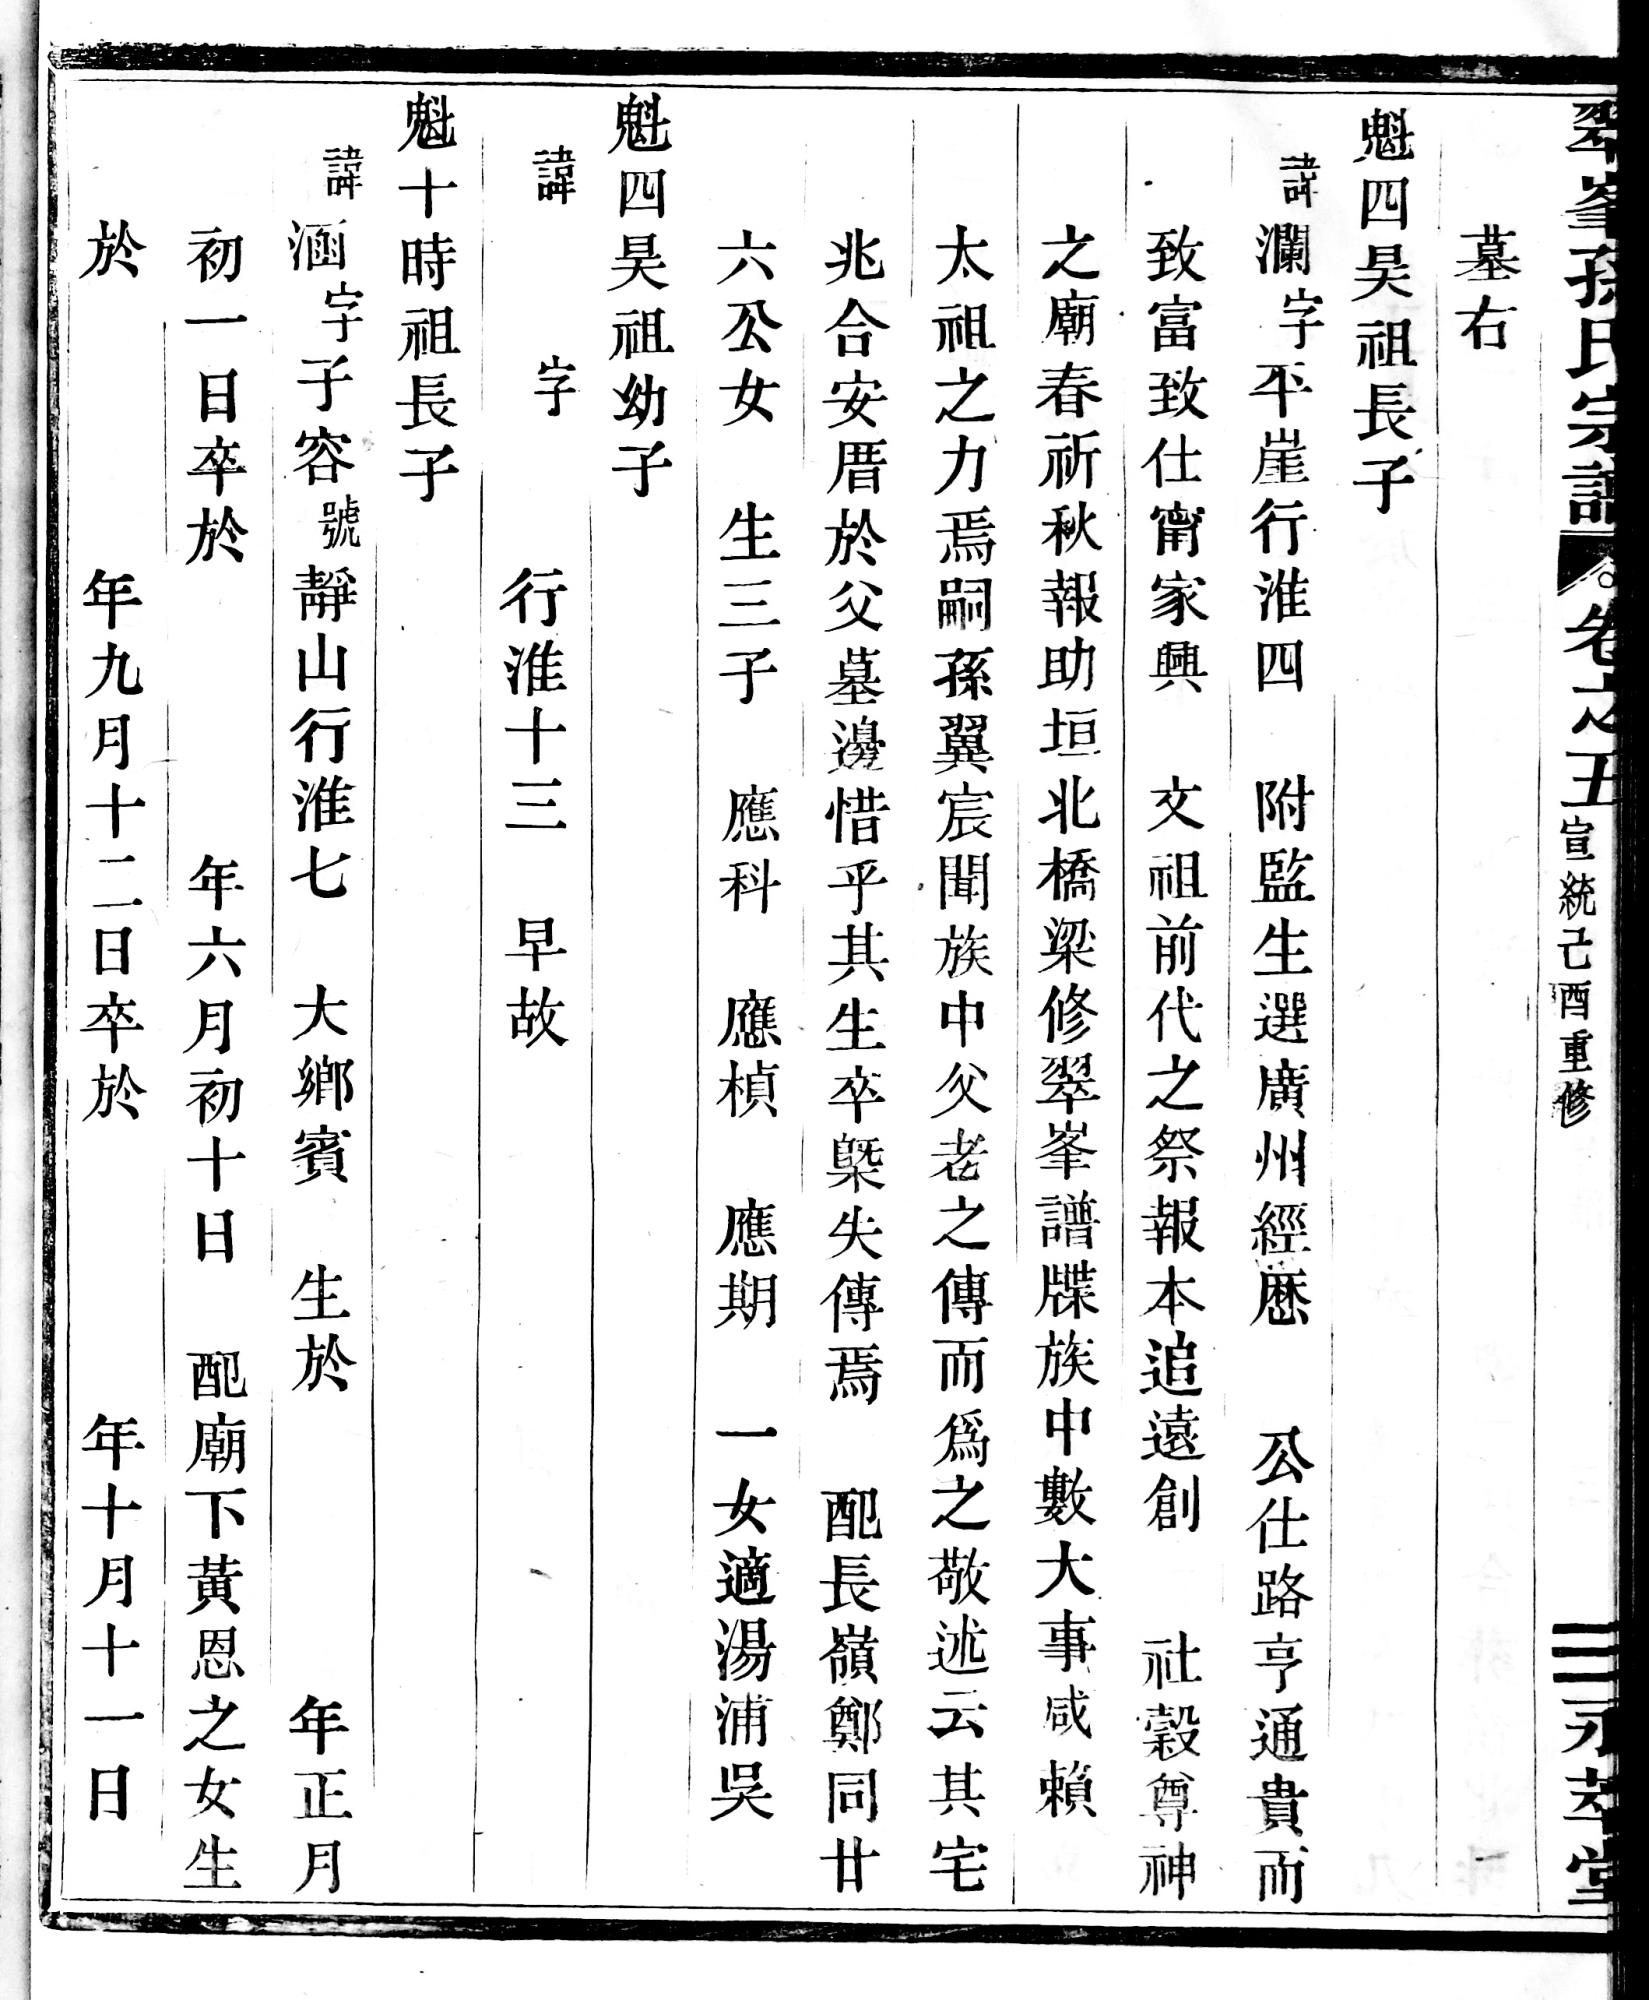 翠峯孫氏宗譜 卷之五 宣統己酉重修 二 永萃堂
墓右
魁四昊祖長子
諱瀾字平崖行淮四 附監生選廣州經歷 公仕路亨通貴而
致富致仕甯家興 文祖前代之祭報本追遠創 社穀尊神
之廟春祈秋報助垣北橋梁修翠峯譜牒族中數大事咸賴
太祖之力焉嗣孫翼宸聞族中父老之傳而爲之敬述云其宅
兆合安厝於父墓邊惜乎其生卒槩失傳焉 配長嶺鄭同廿
六公女 生三子 應科 應楨 應期 一女適湯浦吳
魁四昊祖幼子
諱 字 行淮十三 早故
魁十時祖長子
諱涵字子容號靜山行淮七 大鄉賓 生於 年正月
初一日卒於 年六月初十日 配廟下黃恩之女生
於 年九月十二日卒於 年十月十一日